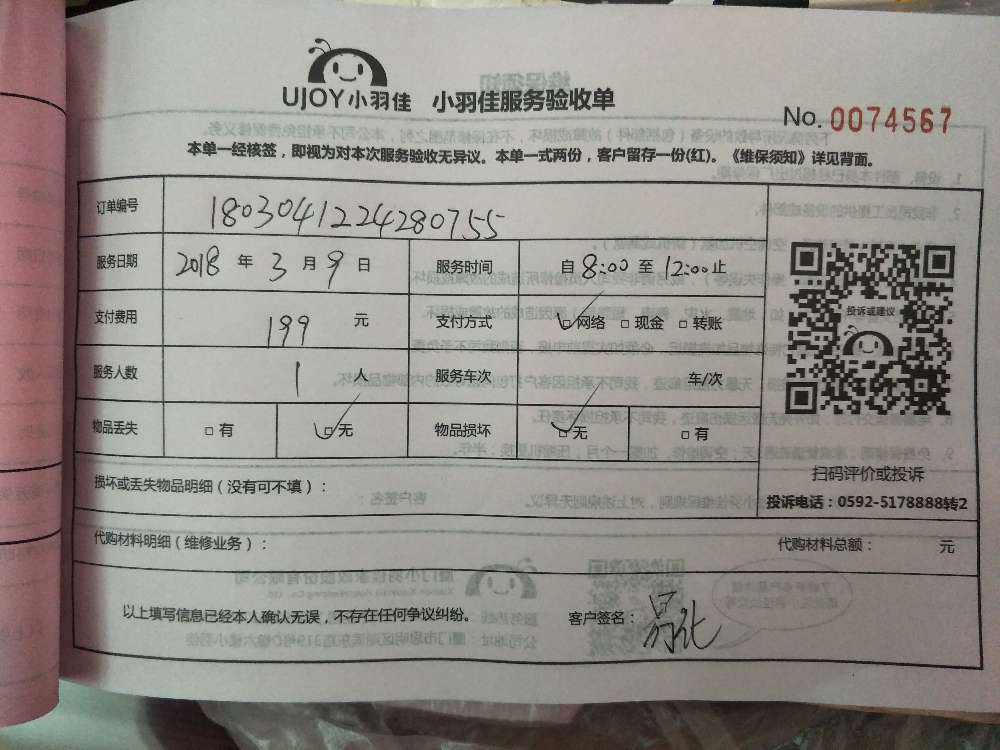 UJOY小羽佳 小羽佳服务验收单
No. 0074567
本单一经核签，即视为对本次服务验收无异议。本单一式两份，客户留存一份(红)。《维保须知》详见背面。
订单编号 1803041224280755
服务日期 2018 年 3 月 9 日 服务时间 自 8:00 至 12:00 止
支付费用 199 元 支付方式 ☑网络 □现金 □转账
服务人数 1 人 服务车次 车/次
物品丢失 □有 ☑无 物品损坏 ☑无 □有
投诉或建议
扫码评价或投诉
投诉电话：0592-5178888转2
损坏或丢失物品明细（没有可不填）：
代购材料明细（维修业务）： 代购材料总额： 元
以上填写信息已经本人确认无误，不存在任何争议纠纷。 客户签名：